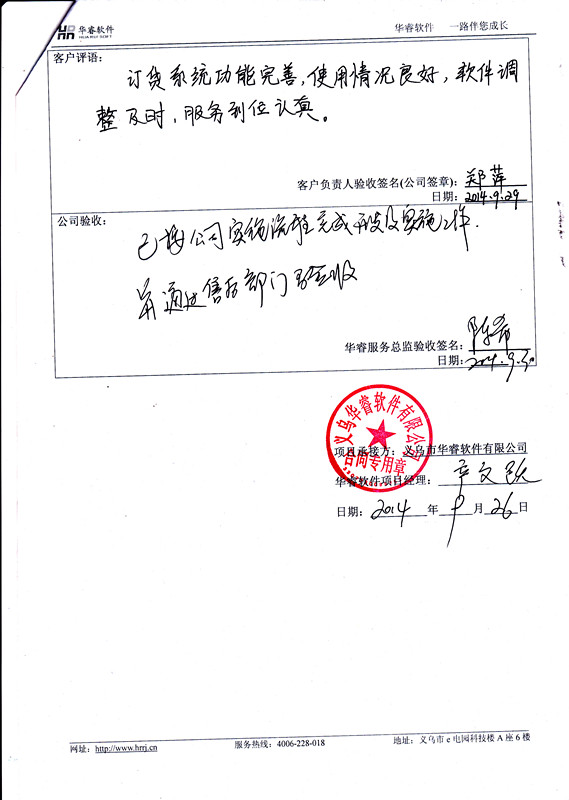 华睿软件
HUARUI SOFT
华睿软件 一路伴您成长
客户评语：
订货系统功能完善，使用情况良好，软件调
整及时，服务到位认真。
客户负责人验收签名(公司签章)：郑萍
日期：2014.9.29
公司验收：
已按公司实施流程完成开发及实施工作.
并通过售后部门验收
华睿服务总监验收签名：陈希
日期：2014.9.30
义乌华睿软件有限公司
合同专用章
项目承接方：义乌市华睿软件有限公司
华睿软件项目经理：
日期：2014年9月26日
网址：http://www.hrrj.cn
服务热线：4006-228-018
地址：义乌市 e 电园科技楼 A 座 6 楼